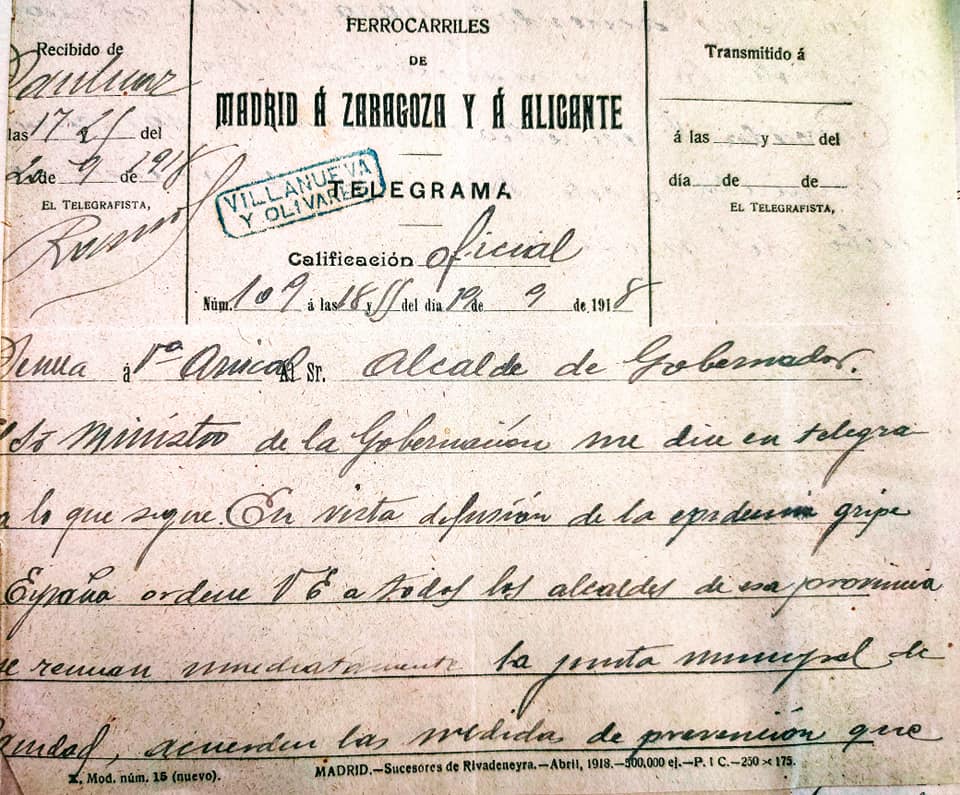 Recibido de
las 17 y 55 del
20 de 9 de 1918
EL TELEGRAFISTA,
Ramos
FERROCARRILES
DE
MADRID Á ZARAGOZA Y Á ALICANTE
TELEGRAMA
VILLANUEVA
Y OLIVARES
Calificación oficial
Núm. 109 á las 18 y 55 del día 19 de 9 de 1918
Transmitido á
á las y del
día de de
EL TELEGRAFISTA,
á Vª Al Sr. Alcalde de Gobernador.
Sr Ministro de la Gobernación me dice en telegra
a lo que sigue. En vista difusión de la epidemia gripe
España ordene VE a todos los alcaldes de esa provincia
se reunan inmediatamente la junta municipal de
anidad, acuerden las medida de prevención que
X. Mod. núm. 15 (nuevo).
MADRID.—Sucesores de Rivadeneyra.—Abril, 1918.—500,000 ej.—P. I C.—250 × 175.